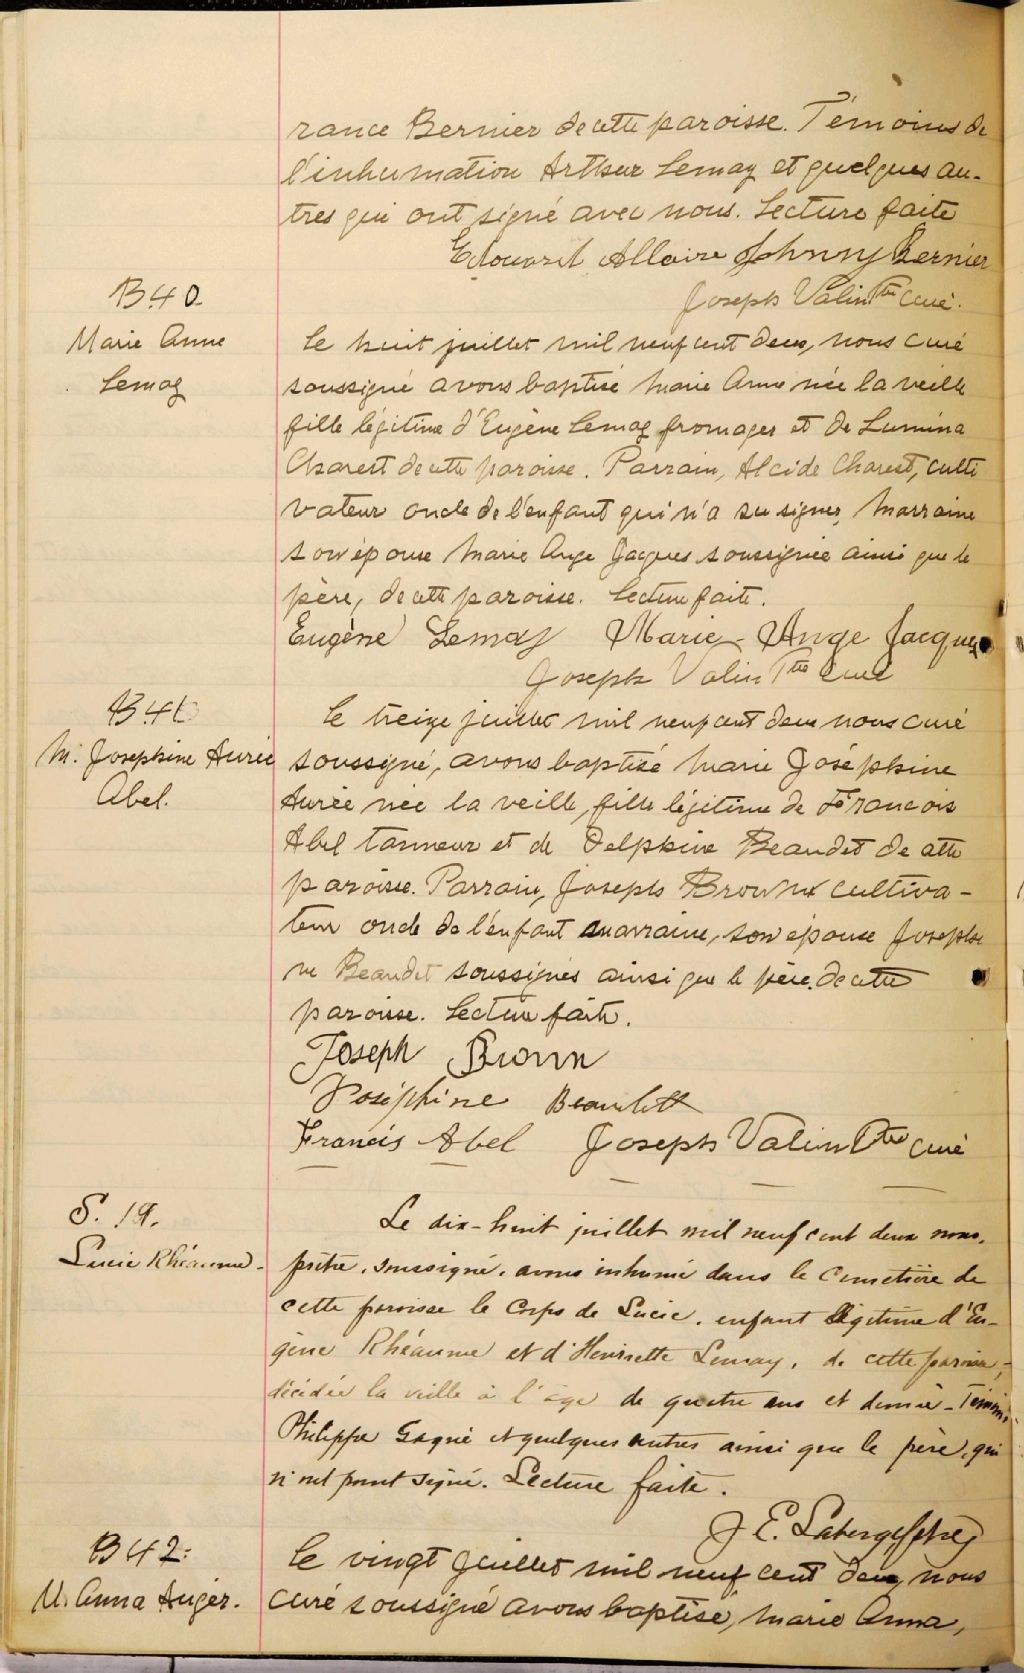 rance Bernier de cette paroisse. Témoins de
l'inhumation Arthur Lemay et quelques au-
tres qui ont signé avec nous. Lecture faite
Edouard Allaire Johnny Bernier
Joseph Valin Ptre curé.
B 40.
Marie Anne
Lemay
Le huit juillet mil neuf cent deux, nous curé
soussigné avons baptisé Marie Anne née la veille
fille légitime d'Eugène Lemay fromager et de Lumina
Charest de cette paroisse. Parrain, Alcide Charest, culti
vateur oncle de l'enfant qui n'a su signer, Marraine
son épouse Marie Ange Jacques soussignée ainsi que le
père, de cette paroisse. Lecture faite.
Eugène Lemay Marie-Ange Jacques
Joseph Valin Ptre curé
B 41
M. Josephine Aurée
Abel.
Le treize juillet mil neuf cent deux nous curé
soussigné, avons baptisé Marie Joséphine
Aurée née la veille, fille légitime de Francois
Abel tanneur et de Delphine Beaudet de cette
paroisse. Parrain, Joseph Brown cultiva-
teur oncle de l'enfant marraine, son épouse Josephi
ne Beaudet soussignés ainsi que le père, de cette
paroisse. Lecture faite.
Joseph Brown
Joséphine Beaudett
Francis Abel Joseph Valin Ptre curé
S. 19.
Lucie Rhéaume.
Le dix-huit juillet mil neuf cent deux nous,
prêtre, soussigné, avons inhumé dans le cimetière de
cette paroisse le corps de Lucie, enfant légitime d'Eu-
gène Rhéaume et d'Henriette Lemay, de cette paroisse,
décédée la veille à l'âge de quatre ans et demie - Témoins
Philippe Gagné et quelques autres ainsi que le père, qui
n'ont point signé. Lecture faite.
J E. Laberge ptre
B 42.
M. Anna Auger.
Le vingt juillet mil neuf cent deux, nous
curé soussigné avons baptisé, Marie Anna,